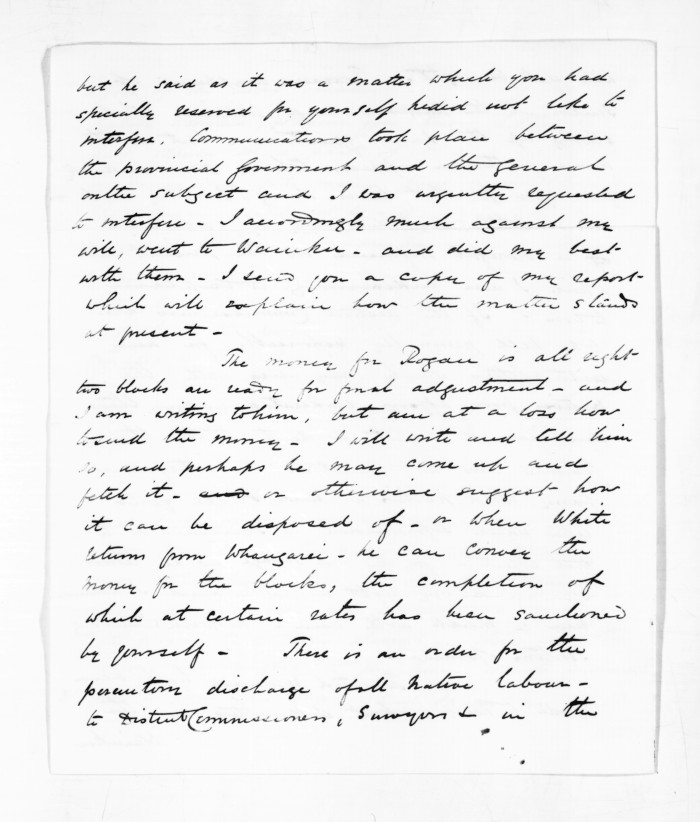 but he said as it was a matter which you had
specially reserved for yourself he did not like to
interfere. Communications took place between
the provincial Government and the General
on the subject and I was urgently requested
to interfere - I accordingly much against my
will, went to Waiuku - and did my best
with them - I send you a copy of my report
which will explain how the matter stands
at present -
The money for Rogan is all right
two blocks are ready for final adjustment - and
I am writing to him, but am at a loss how
to send the money - I will write and tell him
so, and perhaps he may come up and
fetch it - and or otherwise suggest how
it can be disposed of - or when White
returns from Whangarei - he can convey the
money for the blocks, the completion of
which at certain rates has been sanctioned
by yourself - There is an order for the
discharge of all Native labour -
to District Commissioners, Surveyors & in the